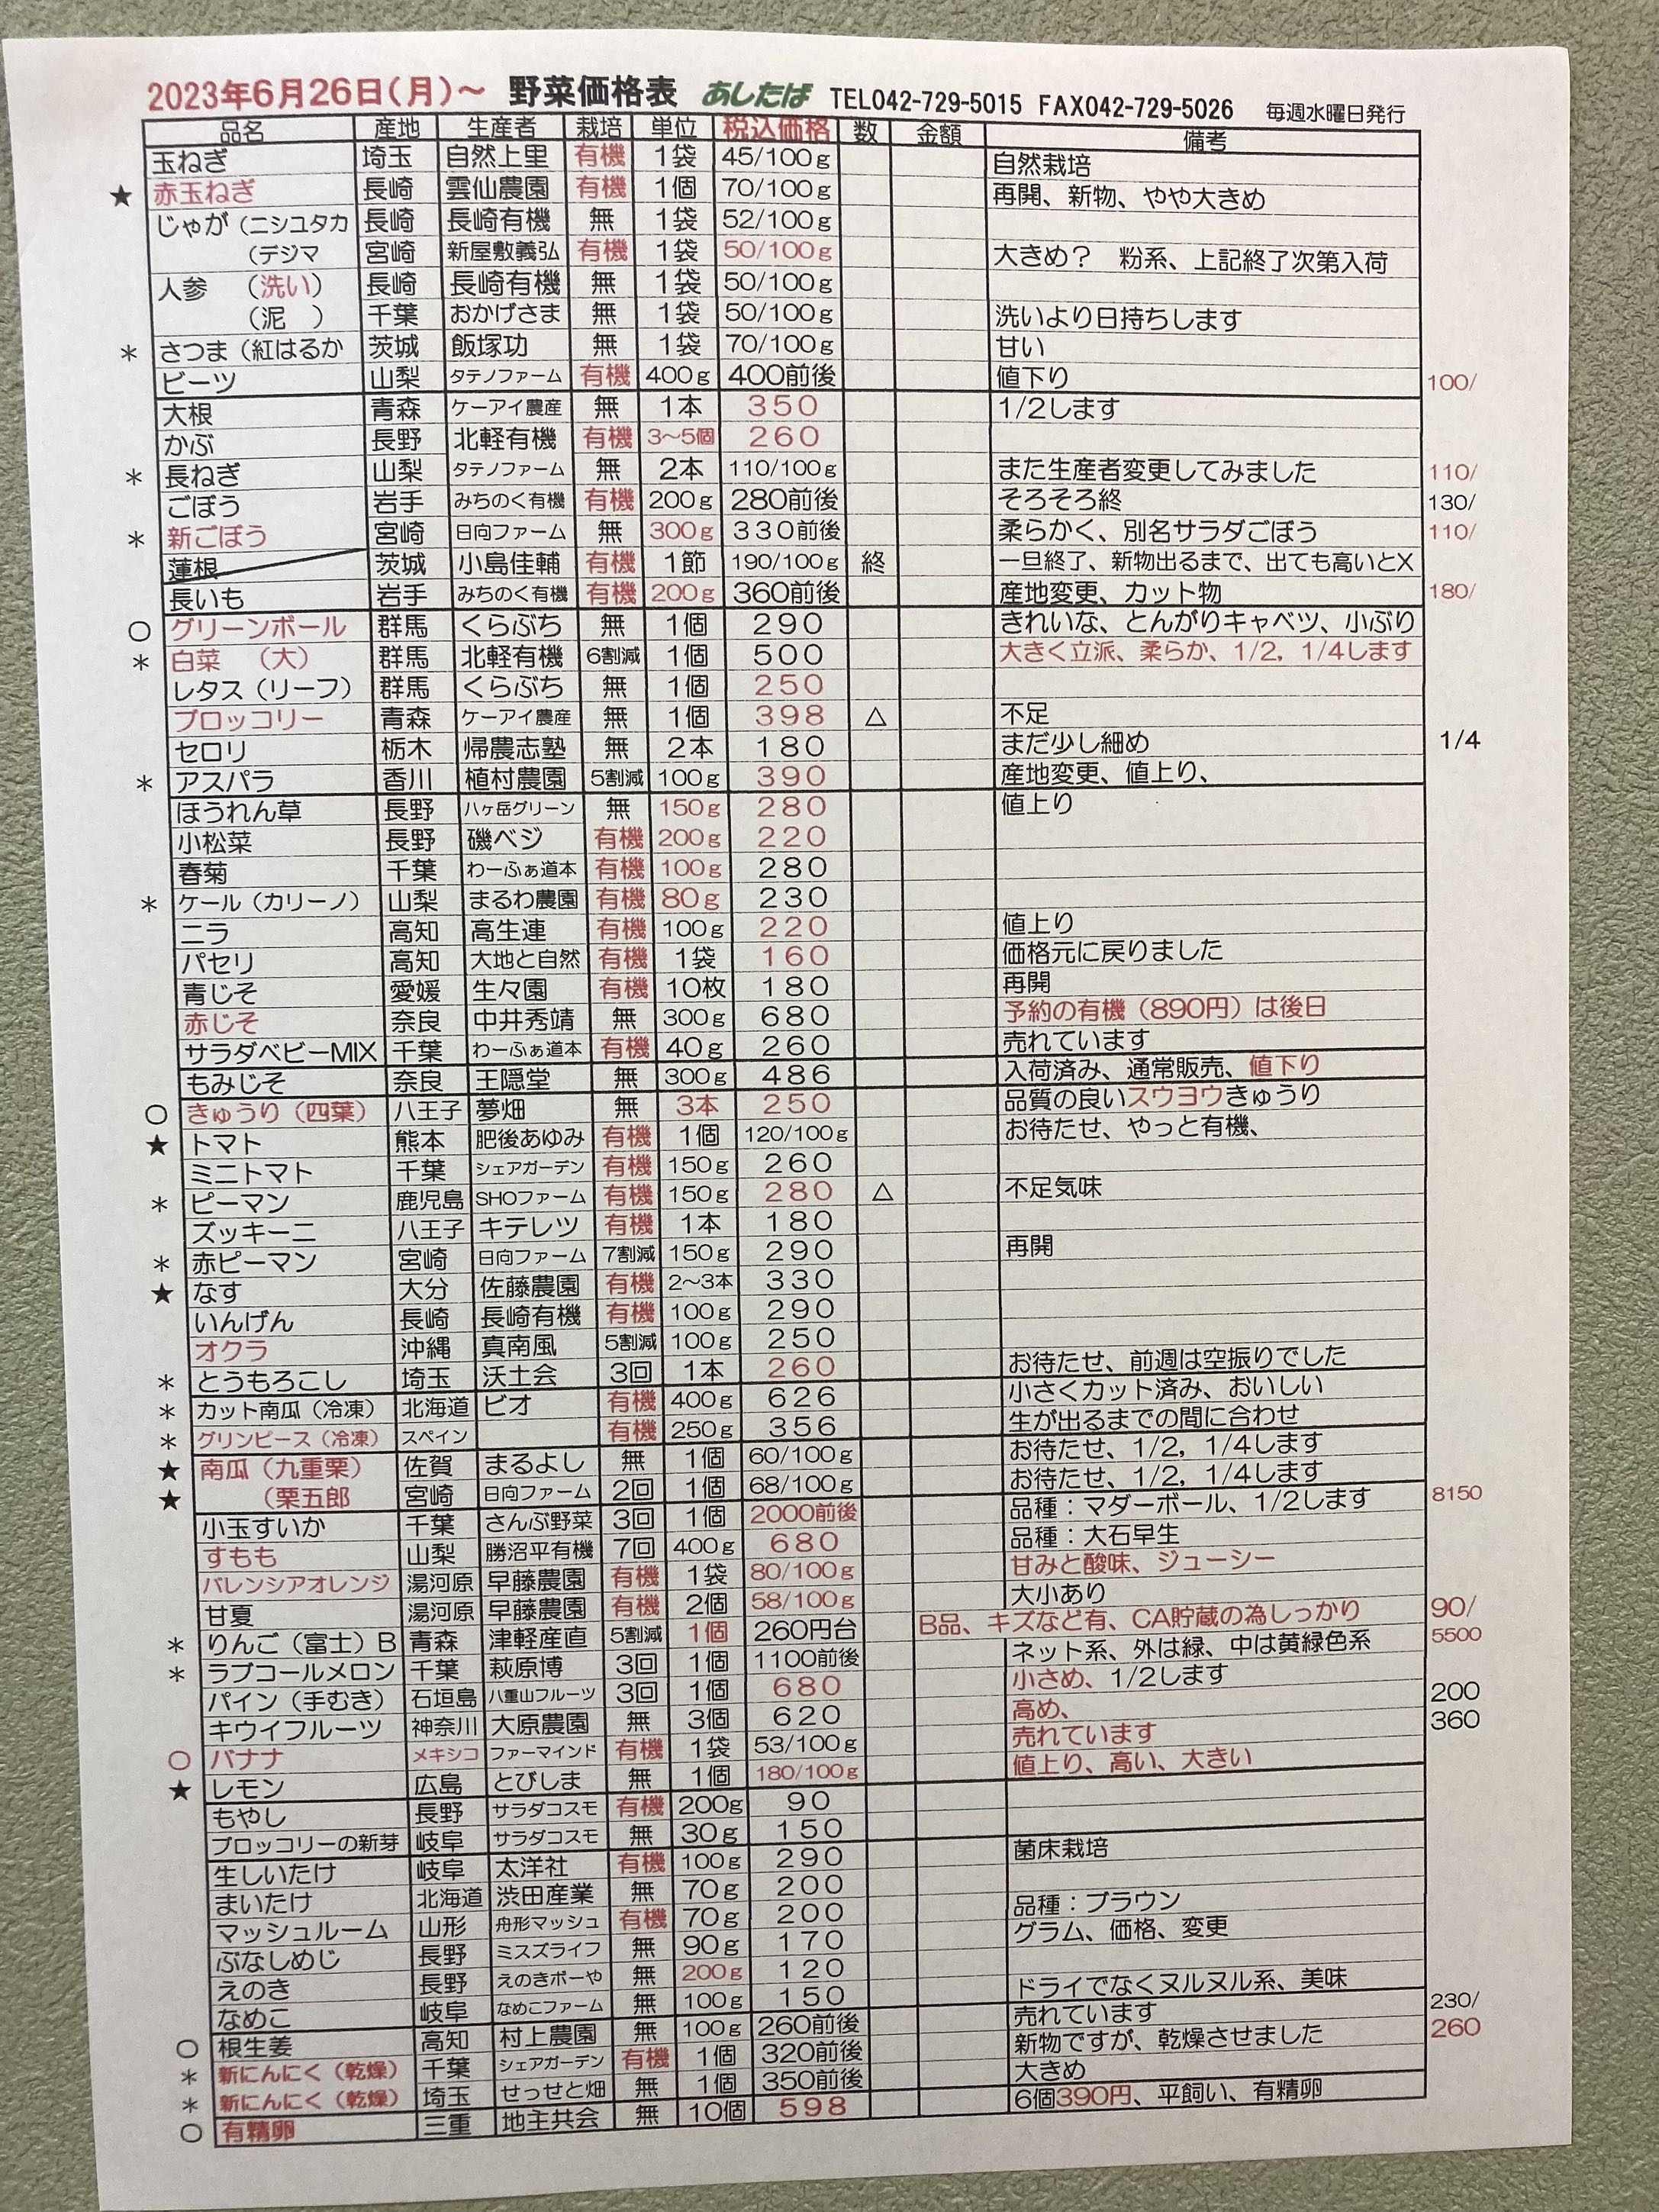 2023年6月26日(月)～ 野菜価格表 あしたば TEL042-729-5015 FAX042-729-5026 毎週水曜日発行
品名 産地 生産者 栽培 単位 税込価格 数 金額 備考
玉ねぎ 埼玉 自然上里 有機 1袋 45/100g 自然栽培
★ 赤玉ねぎ 長崎 雲仙農園 有機 1個 70/100g 再開、新物、やや大きめ
じゃが（ニシユタカ 長崎 長崎有機 無 1袋 52/100g
（デジマ 宮崎 新屋敷義弘 有機 1袋 50/100g 大きめ？ 粉系、上記終了次第入荷
人参 （洗い） 長崎 長崎有機 無 1袋 50/100g
（泥 ） 千葉 おかげさま 無 1袋 50/100g 洗いより日持ちします
＊ さつま（紅はるか 茨城 飯塚功 無 1袋 70/100g 甘い
ビーツ 山梨 タテノファーム 有機 400g 400前後 値下り 100/
大根 青森 ケーアイ農産 無 1本 350 1/2します
かぶ 長野 北軽有機 有機 3～5個 260
＊ 長ねぎ 山梨 タテノファーム 無 2本 110/100g また生産者変更してみました 110/
ごぼう 岩手 みちのく有機 有機 200g 280前後 そろそろ終 130/
＊ 新ごぼう 宮崎 日向ファーム 無 300g 330前後 柔らかく、別名サラダごぼう 110/
蓮根 茨城 小島佳輔 有機 1節 190/100g 終 一旦終了、新物出るまで、出ても高いとX
長いも 岩手 みちのく有機 有機 200g 360前後 産地変更、カット物 180/
○ グリーンボール 群馬 くらぶち 無 1個 290 きれいな、とんがりキャベツ、小ぶり
＊ 白菜 （大） 群馬 北軽有機 6割減 1個 500 大きく立派、柔らか、1/2，1/4します
レタス（リーフ） 群馬 くらぶち 無 1個 250
ブロッコリー 青森 ケーアイ農産 無 1個 398 △ 不足
セロリ 栃木 帰農志塾 無 2本 180 まだ少し細め 1/4
＊ アスパラ 香川 植村農園 5割減 100g 390 産地変更、値上り、
ほうれん草 長野 八ヶ岳グリーン 無 150g 280 値上り
小松菜 長野 磯ベジ 有機 200g 220
春菊 千葉 わーふぁ道本 有機 100g 280
＊ ケール（カリーノ） 山梨 まるわ農園 有機 80g 230
ニラ 高知 高生連 有機 100g 220 値上り
パセリ 高知 大地と自然 有機 1袋 160 価格元に戻りました
青じそ 愛媛 生々園 有機 10枚 180 再開
赤じそ 奈良 中井秀靖 無 300g 680 予約の有機（890円）は後日
サラダベビーMIX 千葉 わーふぁ道本 有機 40g 260 売れています
もみじそ 奈良 王隠堂 無 300g 486 入荷済み、通常販売、値下り
○ きゅうり（四葉） 八王子 夢畑 無 3本 250 品質の良いスウヨウきゅうり
★ トマト 熊本 肥後あゆみ 有機 1個 120/100g お待たせ、やっと有機、
ミニトマト 千葉 シェアガーデン 有機 150g 260
＊ ピーマン 鹿児島 SHOファーム 有機 150g 280 △ 不足気味
ズッキーニ 八王子 キテレツ 有機 1本 180
＊ 赤ピーマン 宮崎 日向ファーム 7割減 150g 290 再開
★ なす 大分 佐藤農園 有機 2～3本 330
いんげん 長崎 長崎有機 有機 100g 290
オクラ 沖縄 真南風 5割減 100g 250
＊ とうもろこし 埼玉 沃土会 3回 1本 260 お待たせ、前週は空振りでした
＊ カット南瓜（冷凍） 北海道 ビオ 有機 400g 626 小さくカット済み、おいしい
＊ グリンピース（冷凍） スペイン 有機 250g 356 生が出るまでの間に合わせ
★ 南瓜（九重栗） 佐賀 まるよし 無 1個 60/100g お待たせ、1/2，1/4します
★ （栗五郎 宮崎 日向ファーム 2回 1個 68/100g お待たせ、1/2，1/4します
小玉すいか 千葉 さんぶ野菜 3回 1個 2000前後 品種：マダーボール、1/2します 8150
すもも 山梨 勝沼平有機 7回 400g 680 品種：大石早生
バレンシアオレンジ 湯河原 早藤農園 有機 1袋 80/100g 甘みと酸味、ジューシー
甘夏 湯河原 早藤農園 有機 2個 58/100g 大小あり
＊ りんご（富士）B 青森 津軽産直 5割減 1個 260円台 B品、キズなど有、CA貯蔵の為しっかり 90/
＊ ラブコールメロン 千葉 萩原博 3回 1個 1100前後 ネット系、外は緑、中は黄緑色系 5500
パイン（手むき） 石垣島 八重山フルーツ 3回 1個 680 小さめ、1/2します
キウイフルーツ 神奈川 大原農園 無 3個 620 高め、 200
○ バナナ メキシコ ファーマインド 有機 1袋 53/100g 売れています 360
★ レモン 広島 とびしま 無 1個 180/100g 値上り、高い、大きい
もやし 長野 サラダコスモ 有機 200g 90
ブロッコリーの新芽 岐阜 サラダコスモ 無 30g 150
生しいたけ 岐阜 太洋社 有機 100g 290 菌床栽培
まいたけ 北海道 渋田産業 無 70g 200
マッシュルーム 山形 舟形マッシュ 有機 70g 200 品種：ブラウン
ぶなしめじ 長野 ミスズライフ 無 90g 170 グラム、価格、変更
えのき 長野 えのきボーや 無 200g 120
なめこ 岐阜 なめこファーム 無 100g 150 ドライでなくヌルヌル系、美味
○ 根生姜 高知 村上農園 無 100g 260前後 売れています 230/
＊ 新にんにく（乾燥） 千葉 シェアガーデン 有機 1個 320前後 新物ですが、乾燥させました 260
＊ 新にんにく（乾燥） 埼玉 せっせと畑 無 1個 350前後 大きめ
○ 有精卵 三重 地主共会 無 10個 598 6個390円、平飼い、有精卵